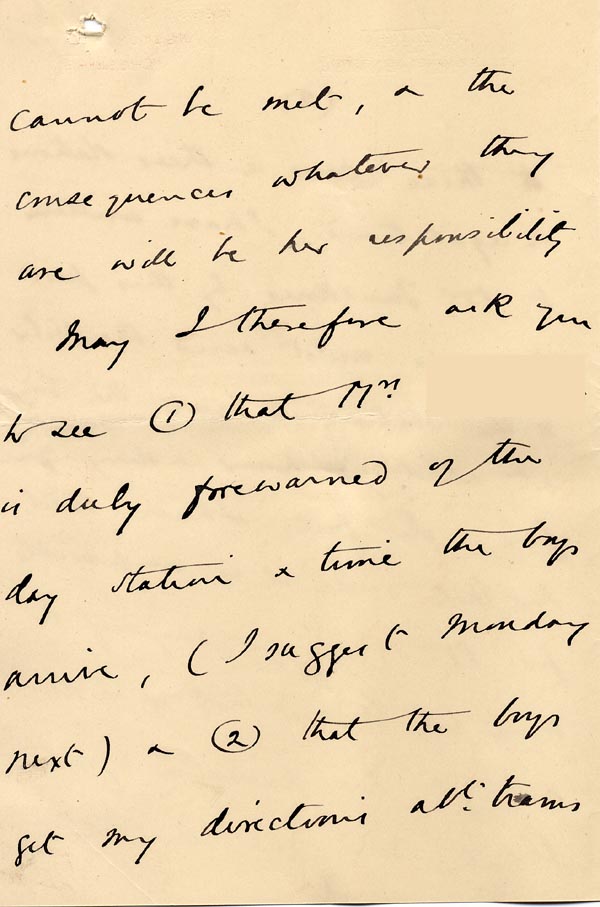 cannot be met, & the
consequences whatever they
are will be her responsibility
May I therefore ask you
to see ① that Mrs
is duly forewarned of the
day station & time the boys
arrive, (I suggest Monday
next) & ② that the boys
get my directions abt. trams